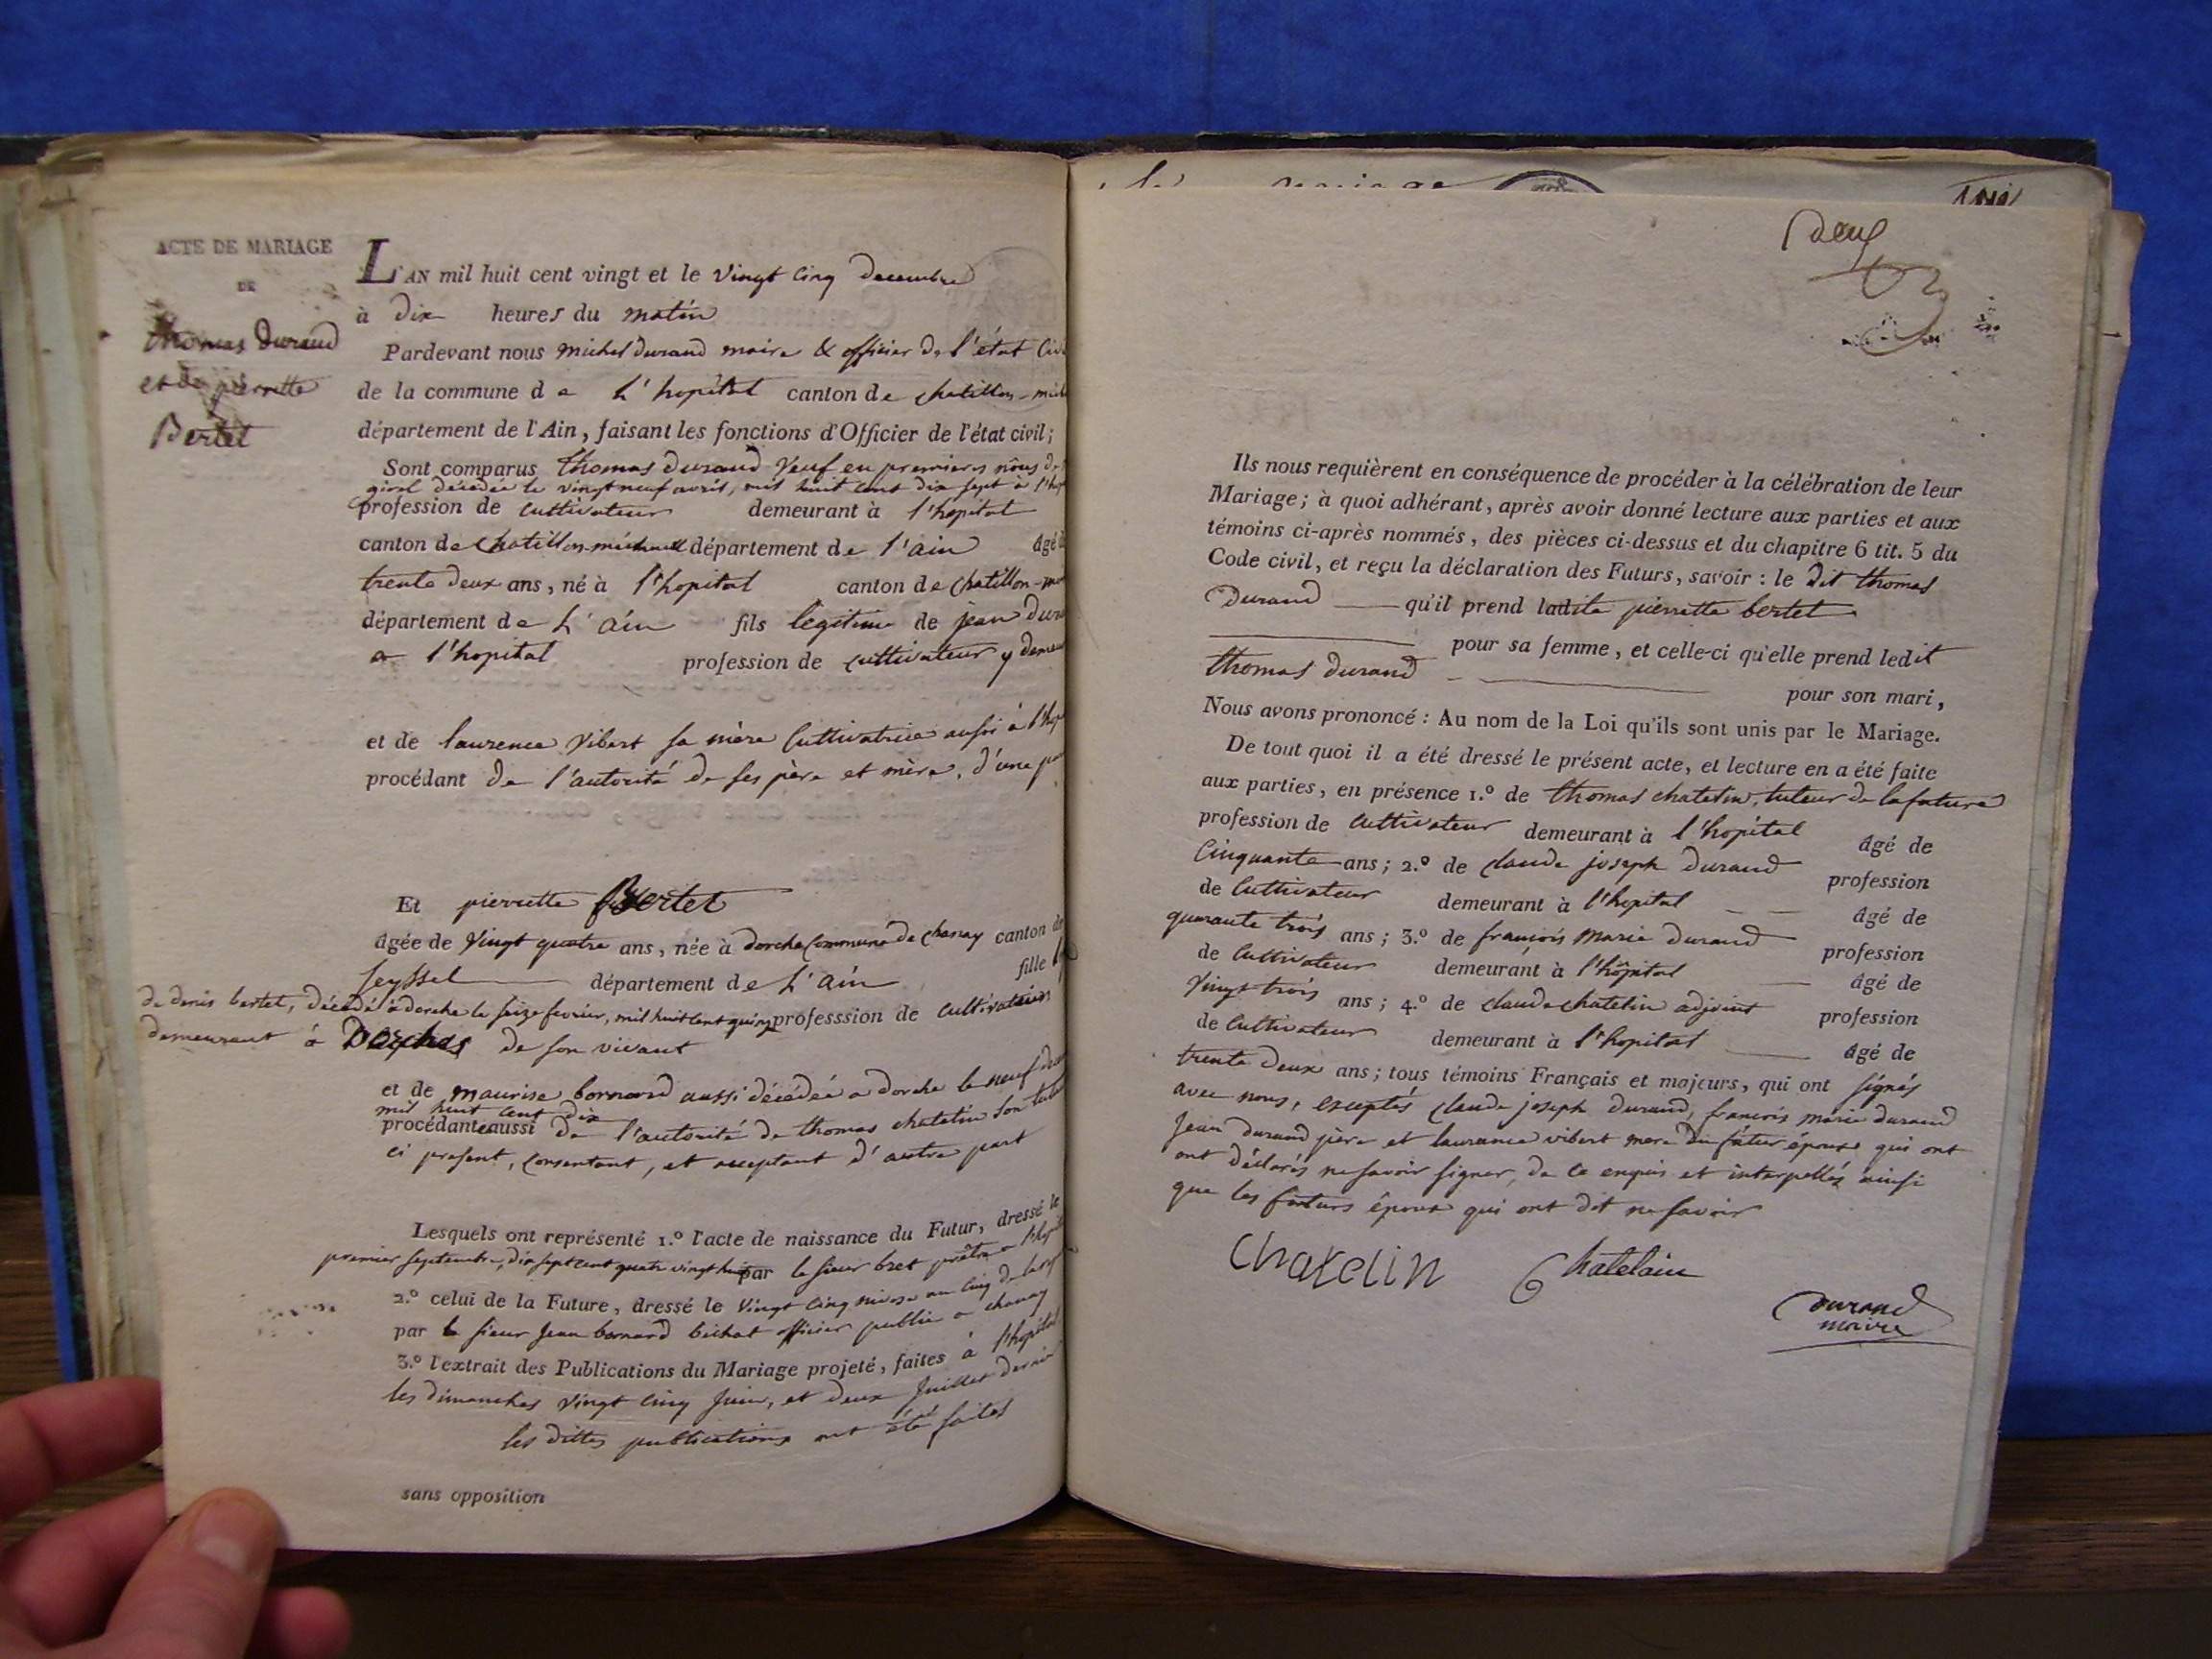 ACTE DE MARIAGE
DE
thomas durand
et de pierrette
Bertet
L'AN mil huit cent vingt et le vingt cinq decembre
à dix heures du matin
Pardevant nous michel durand maire & officier de l'état Civi
de la commune de L'hopital canton de chatillon-mich
département de l'Ain, faisant les fonctions d'Officier de l'état civil;
Sont comparus thomas durand veuf en premieres nôces de
girel décédée le vingt neuf avril, mil huit cent dix sept à l'hop
profession de cultivateur demeurant à l'hopital
canton de chatillon-michaill département de l'ain âgé d
trente deux ans, né à l'hopital canton de chatillon-mi
département de L'ain fils légitime de jean dura
a l'hopital profession de cultivateur y demeu
et de laurence vibert sa mère Cultivatrice aussi à l'hop
procédant de l'autorité de ses père et mère, d'une pa
Et pierrette Bertet
âgée de vingt quatre ans, née à dorche Commune de chanay canton de
seyssel département de L'ain fille
de denis bertet, décédé à dorche le seize fevrier, mil huit cent quinze professsion de cultivateur
demeurant à Dorches de son vivant
et de maurise bornard aussi décédée a dorche le neuf
mil huit cent dix
procédante aussi de l'autorité de thomas chatelin son tuteu
ci présent, consentant, et acceptant d'autre part
Lesquels ont représenté 1.º l'acte de naissance du Futur, dressé le
premier septembre, dix sept cent quatre vingt huit par le sieur bret prêtre a l'hopit
2.º celui de la Future, dressé le vingt cinq nivose an cinq de la
par le sieur Jean bornard bichat officier public a chanay
3.º l'extrait des Publications du Mariage projeté, faites à l'hopital
les dimanches vingt cinq Juin, et deux Juillet dernier
les dittes publications ont été faites
sans opposition
deux
Ils nous requièrent en conséquence de procéder à la célébration de leur
Mariage; à quoi adhérant, après avoir donné lecture aux parties et aux
témoins ci-après nommés, des pièces ci-dessus et du chapitre 6 tit. 5 du
Code civil, et reçu la déclaration des Futurs, savoir : le dit thomas
Durand qu'il prend ladite pierrette bertet
pour sa femme, et celle-ci qu'elle prend ledit
thomas durand pour son mari,
Nous avons prononcé : Au nom de la Loi qu'ils sont unis par le Mariage.
De tout quoi il a été dressé le présent acte, et lecture en a été faite
aux parties, en présence 1.º de thomas chatelin, tuteur de la future
profession de cultivateur demeurant à l'hopital âgé de
Cinquante ans; 2.º de claude joseph durand profession
de Cultivateur demeurant à l'hopital âgé de
quarante trois ans; 3.º de françois marie durand profession
de Cultivateur demeurant à l'hôpital âgé de
vingt trois ans; 4.º de claude chatelin adjoint profession
de Cultivateur demeurant à l'hopital âgé de
trente deux ans; tous témoins Français et majeurs, qui ont signés
avec nous, exceptés claude joseph durand, françois marie durand
Jean durand père et laurence vibert mere du futur époux qui ont
ont déclarés ne savoir signer, de ce enquis et interpellés ainsi
que les futurs époux qui ont dit ne savoir
Chatelin Chatelain
durand
maire